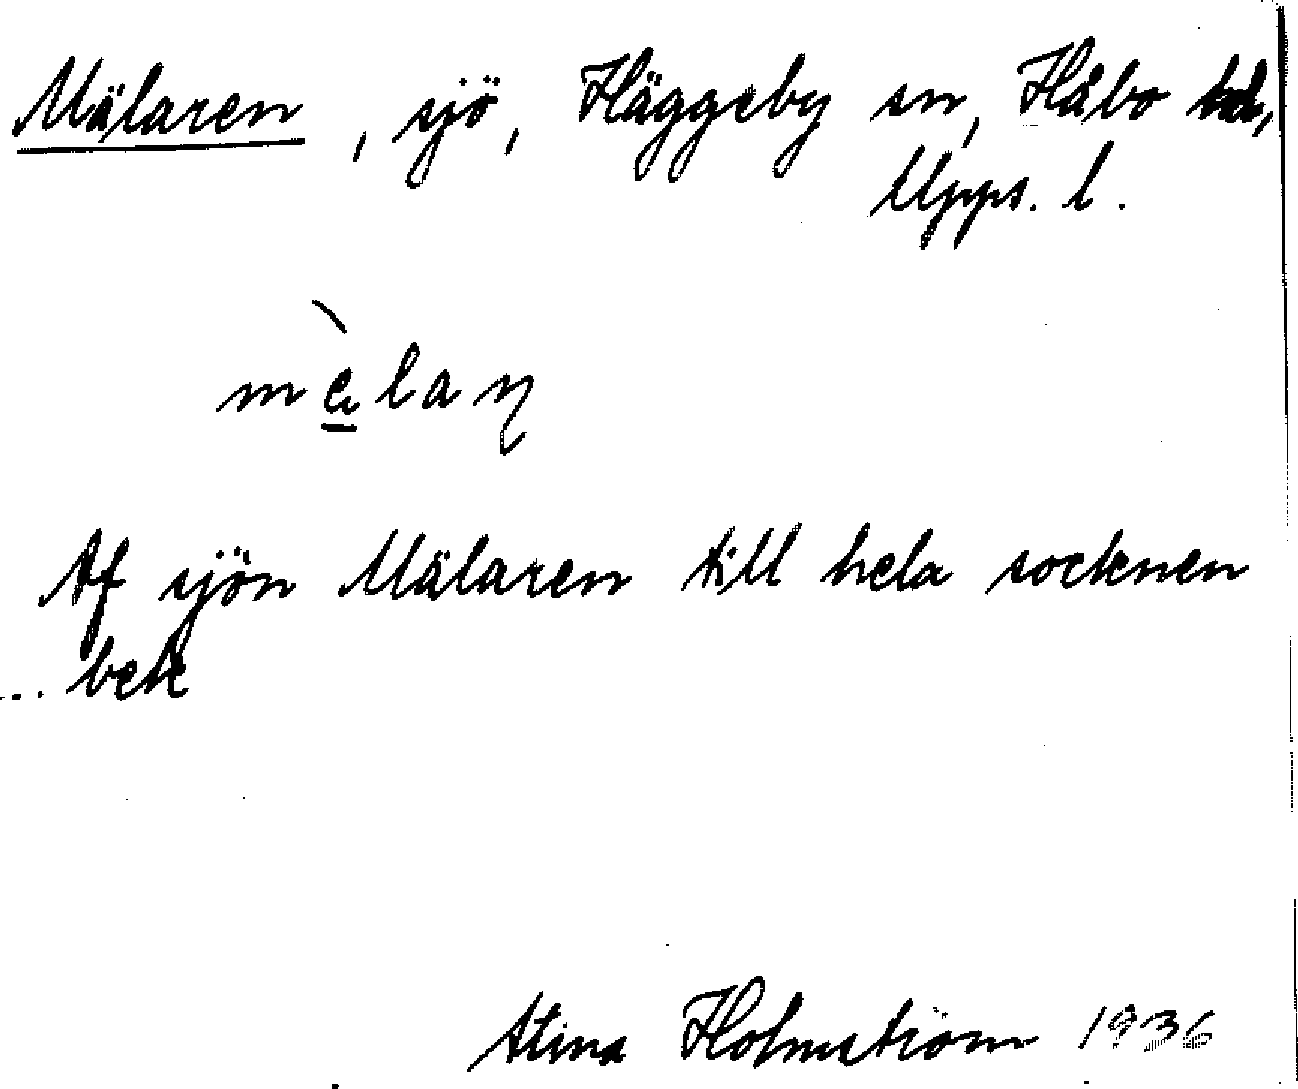 Mälaren, sjö, Häggeby sn, Håbo hd,
Upps. l.
mèlaɳ
Af sjön Mälaren till hela socknen
... bek
Stina Holmström 1936